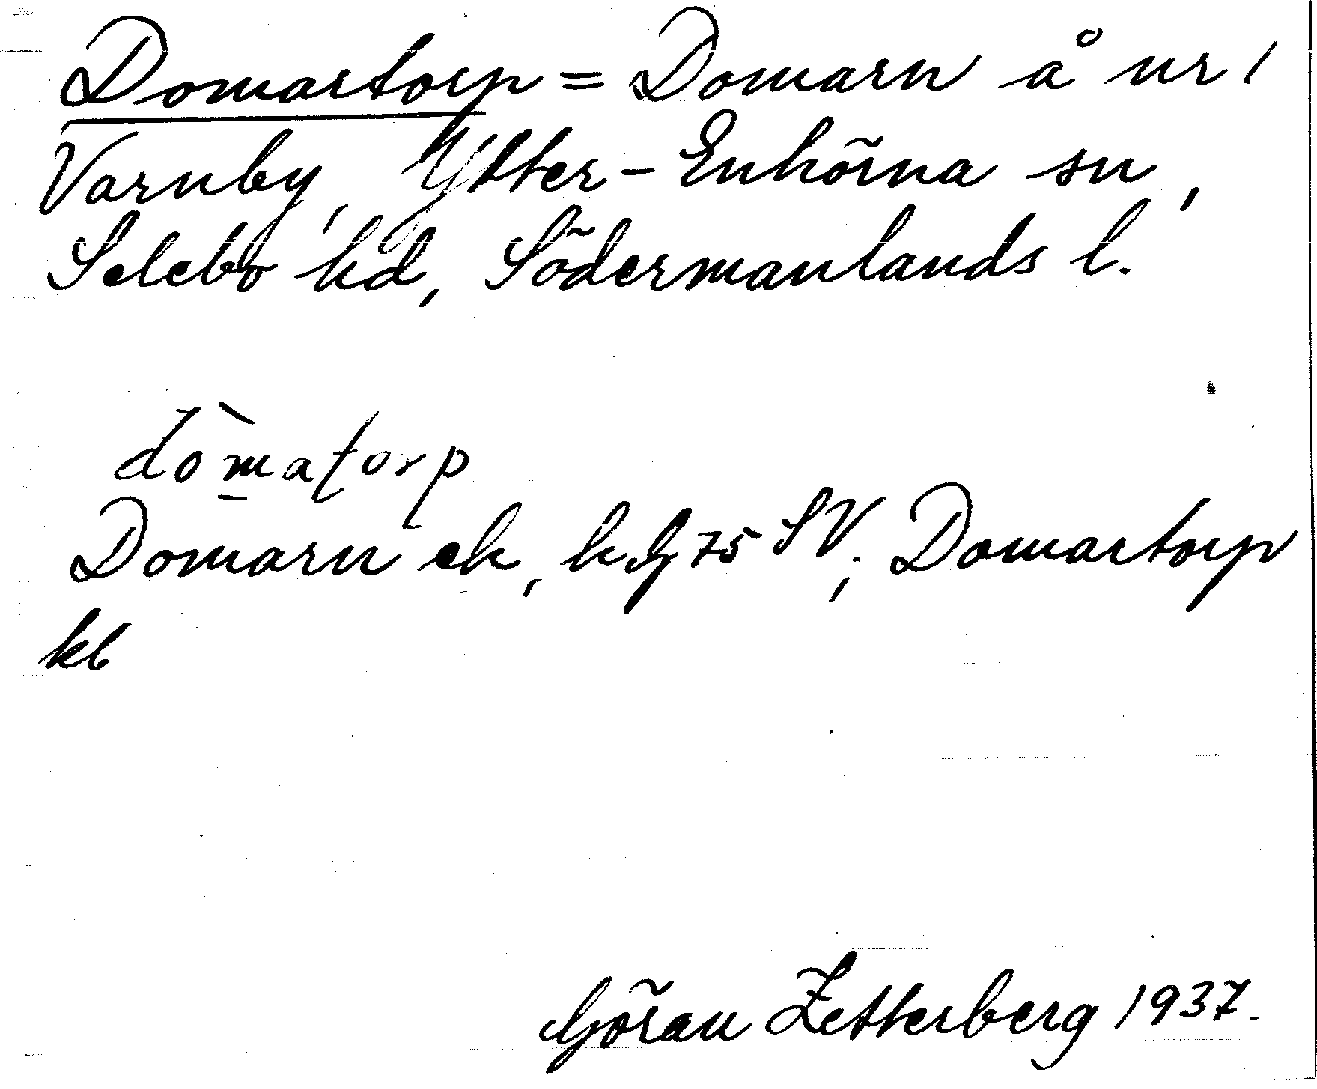 Domartorp = Domarn å nr 1
Varnby, Ytter-Enhörna sn,
Selebo hd, Södermanlands l.
dòmatorp
Domarn ek, h. G 75 SV; Domartorp
kb
Göran Zetterberg 1937.